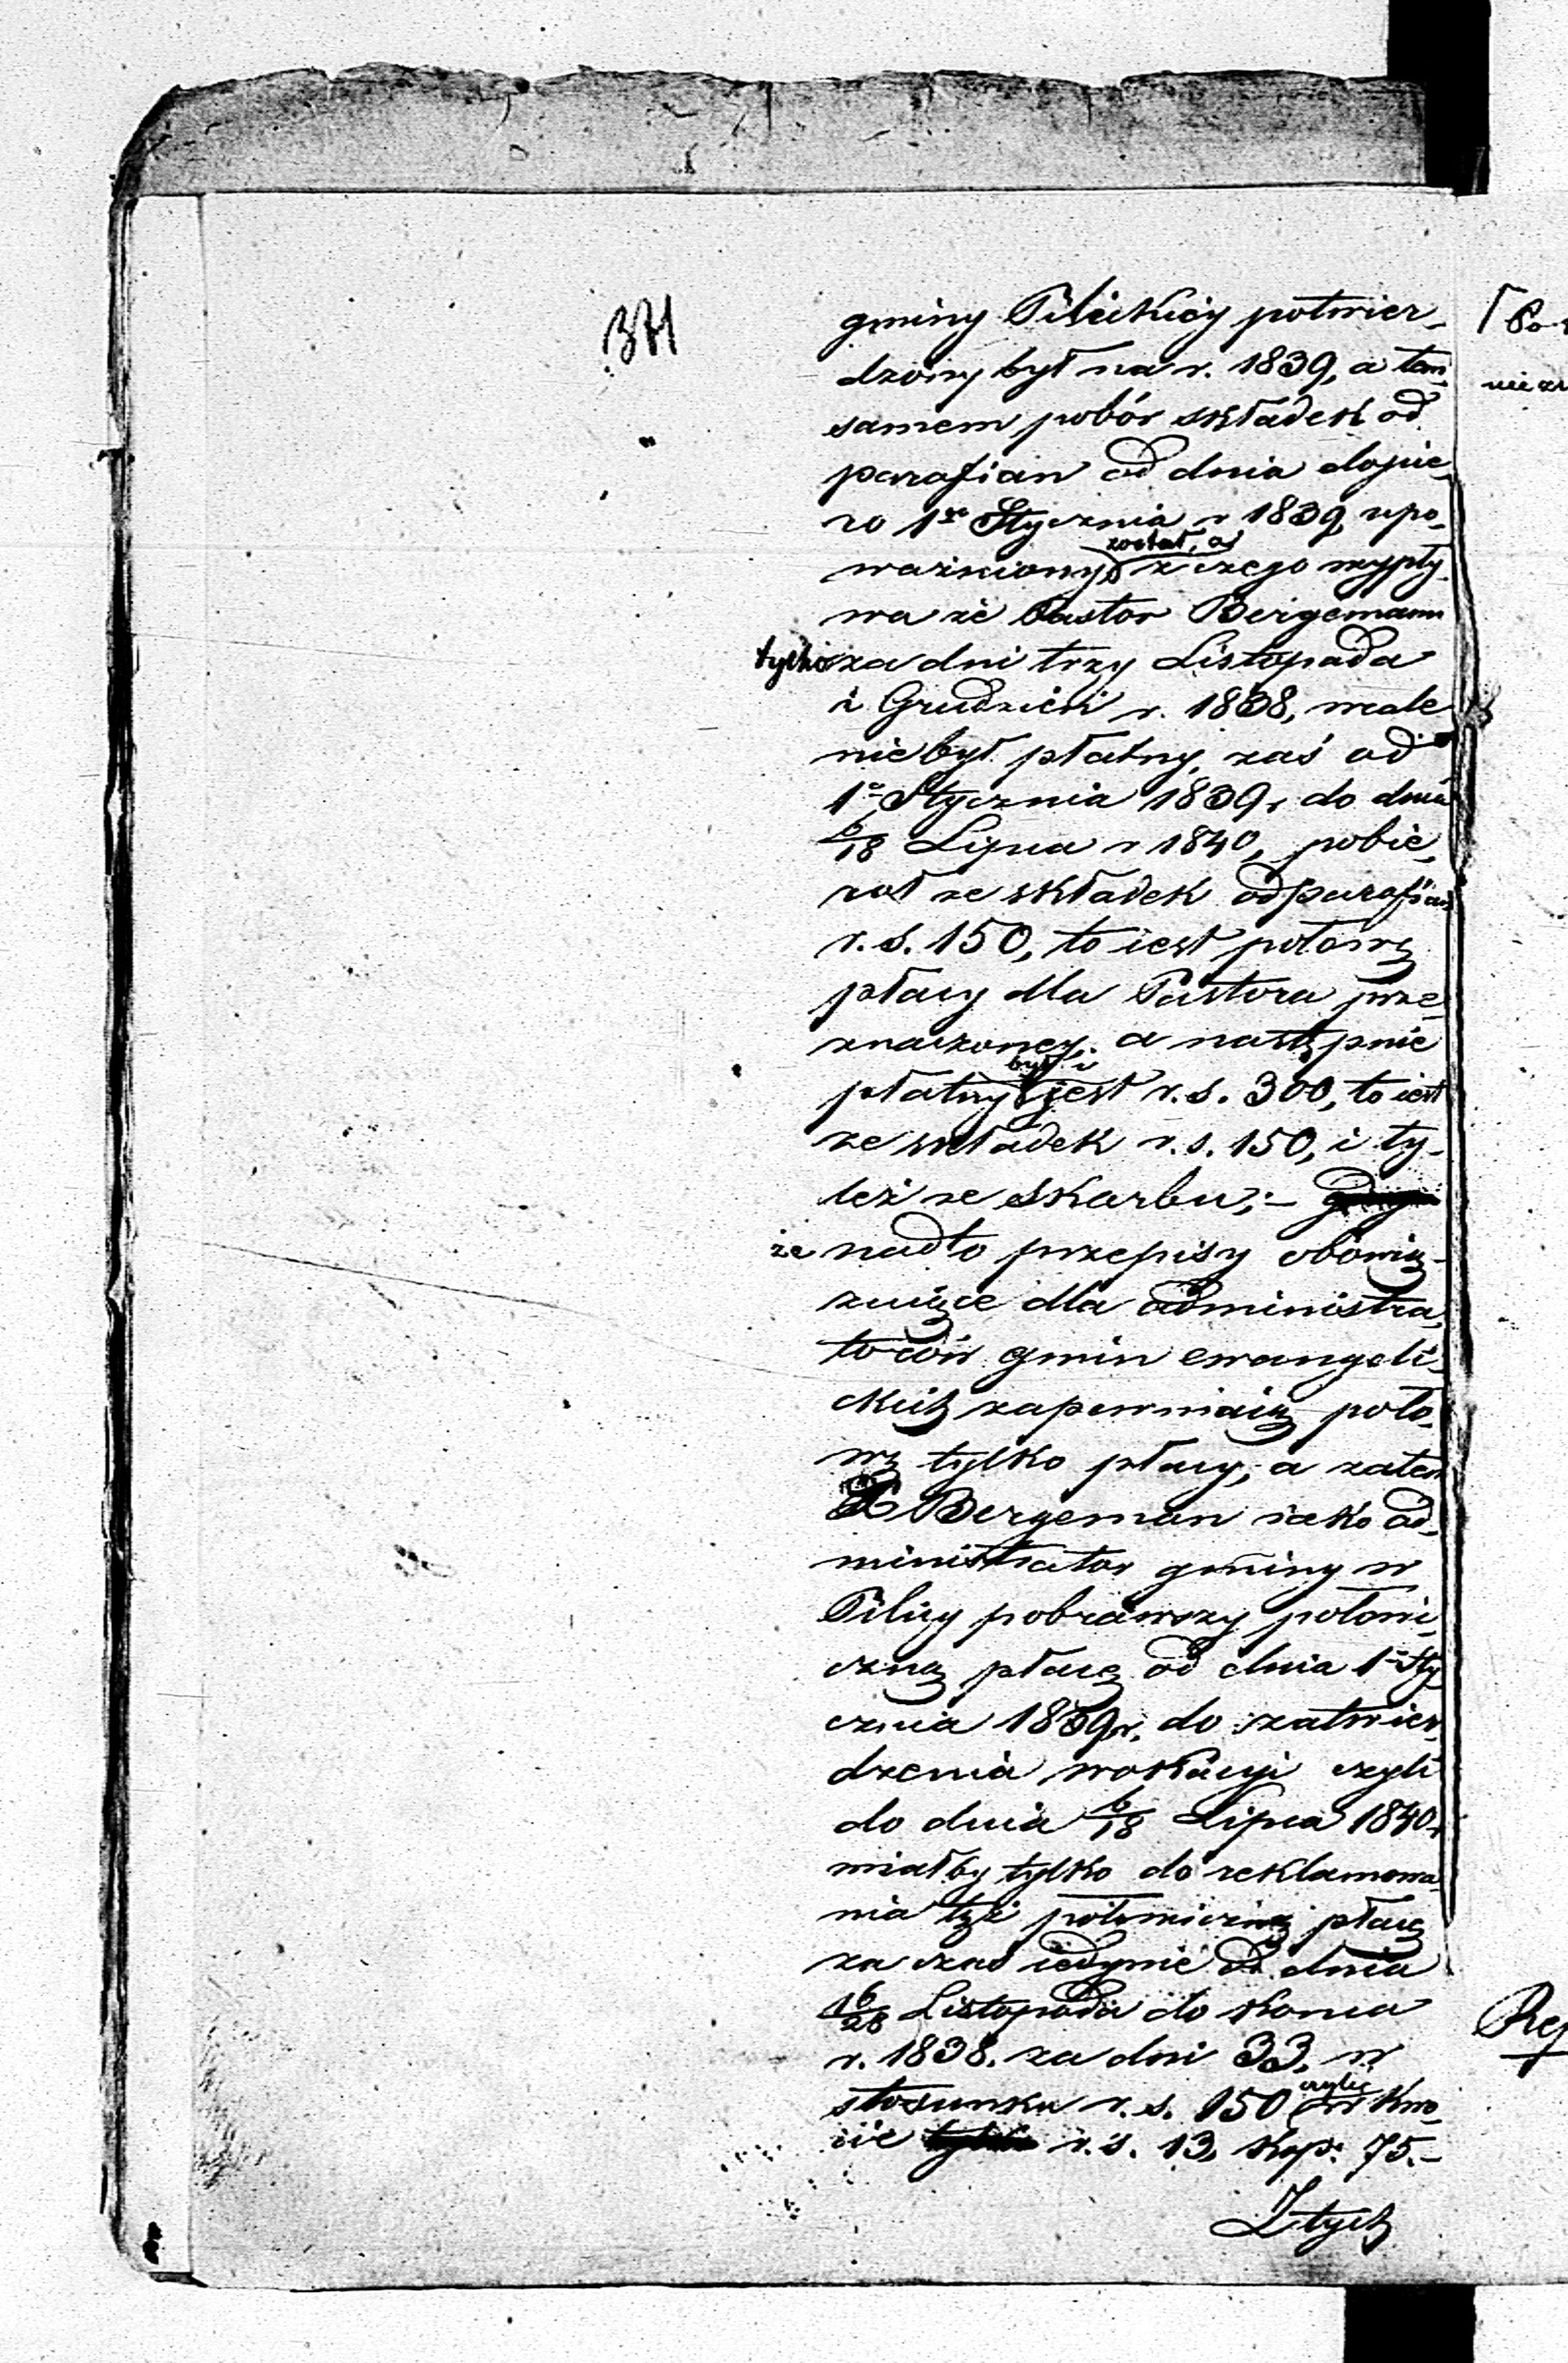 371
gminy Pilickiéy potwier-
dzony był na r. 1839, a tem
samem pobór składek od
parafian od dnia dopie-
ro 1go Stycznia r 1839 upo-
został, a
ważniony z czego wypły-
wa że Pastor Bergemann
tylko za dni trzy Listopada
i Grudzień r. 1838, wcale
nie był płatny, zaś od
1o Stycznia 1839 r. do dnia
6/18 Lipca r 1840, pobie-
rał ze składek od parafian
r. s. 150, to iest połowę
płacy dla Pastora prze-
znaczoney. a następnie
był i
płatny jest r. s. 300, to iest
ze składek r. s. 150, i ty-
leż ze skarbu;-
że nadto przepisy obowią-
zuiące dla administra-
torów gmin ewangeli-
ckich zapewniaią poło-
wę tylko płacy, a zatem
X Bergeman iako ad-
ministrator gminy w
Pilicy pobrawszy połowi-
czną płacę od dnia 1o Sty-
cznia 1839 r. do zatwier-
dzenia wokacyi czyli
do dnia 6/18 Lipca 1840 r
miałby tylko do reklamowa-
nia téż połowiczną płacę
za czas iedynie od dnia
16/28 Listopada do końca
r. 1838. za dni 33, w
czyli
stosunku r. s. 150 w kwo-
cie r. s. 13, kop. 75.-
Z tych